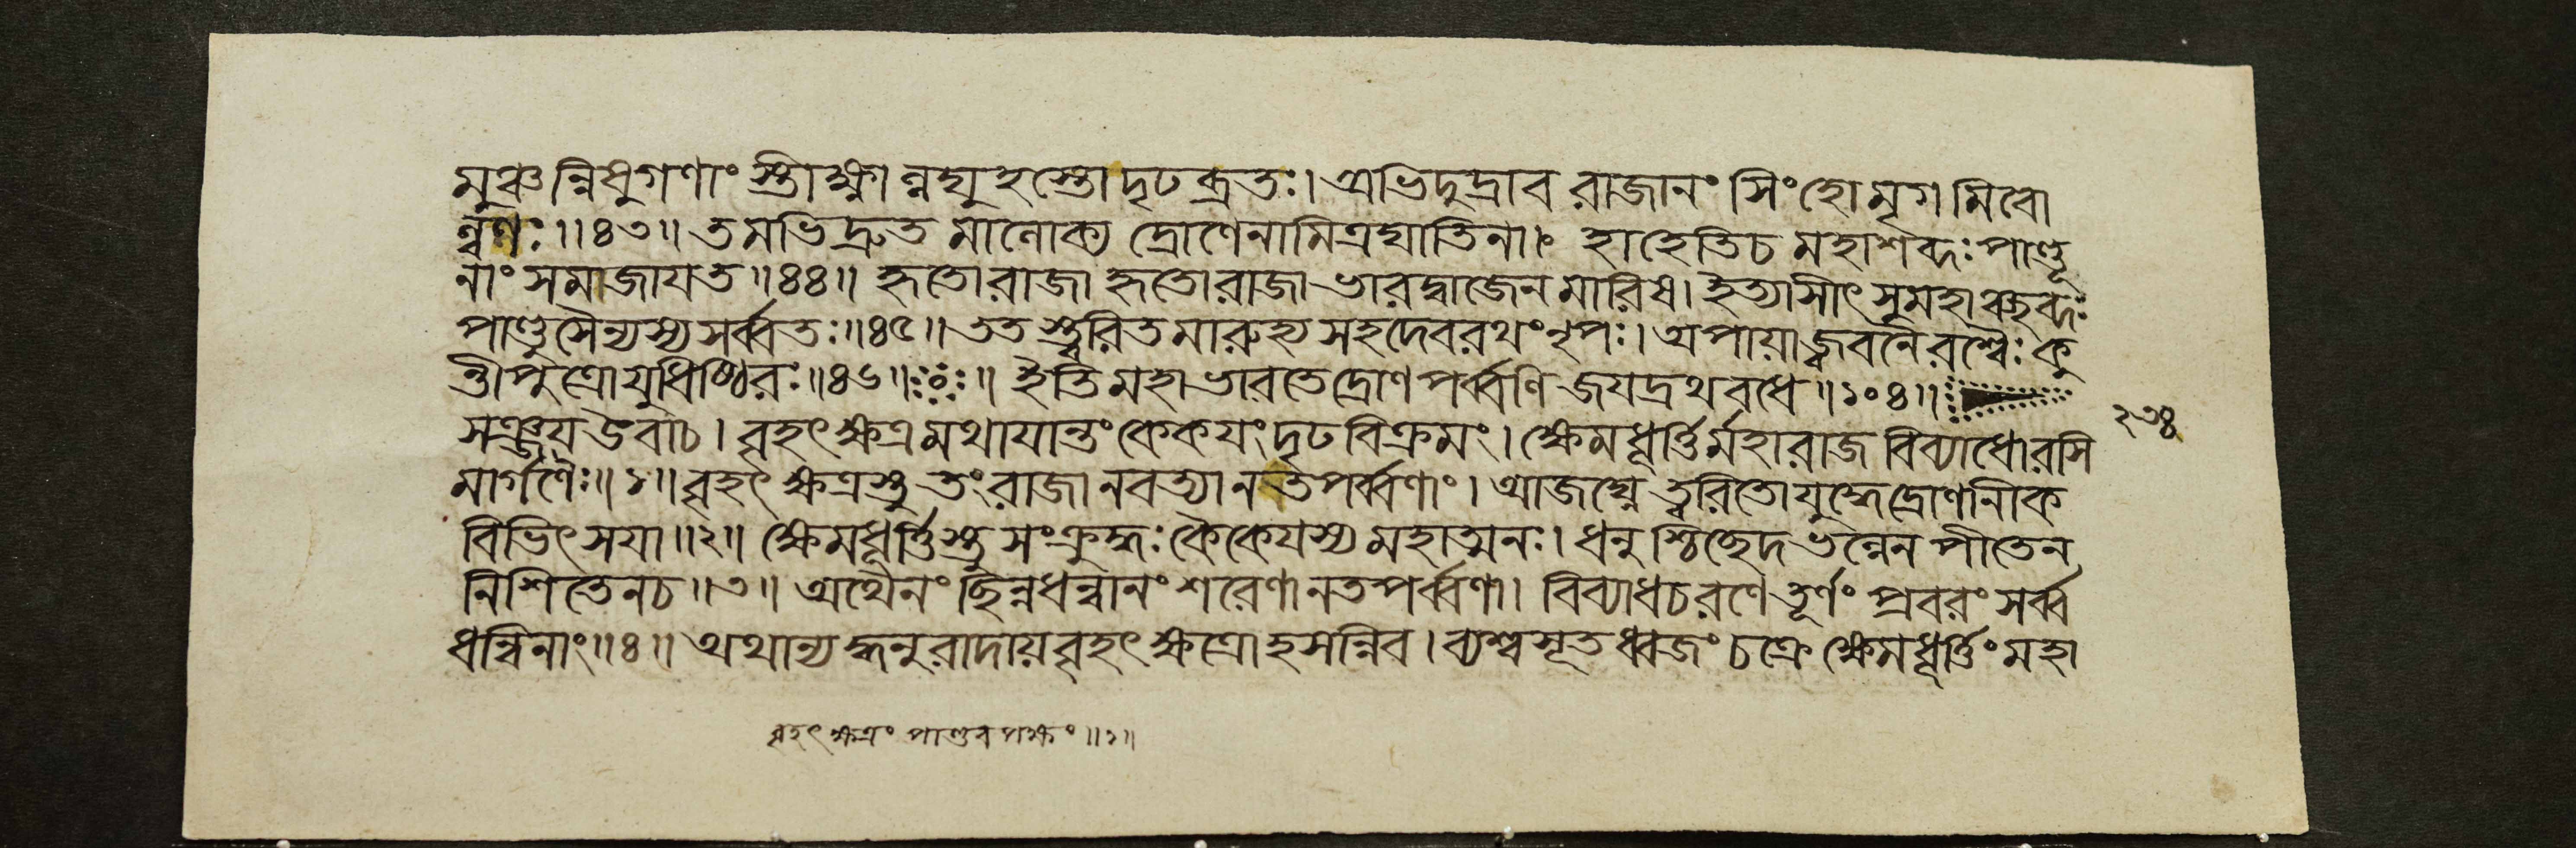 মুঞ্চন্নিষুগণাংস্তীক্ষ্ণান্নঘুহস্তোদৃঢব্রতঃ। অভিদুদ্রাব রাজানং সিংহোমৃগমিবো
ন্বণঃ॥৪৩॥ তমভিদ্রুতমানোক্য দ্রোণেনামিত্রঘাতিনা। হাহেতিচ মহাশব্দঃ পাণ্ডূ
নাং সমাজাযত॥৪৪॥ হৃতোরাজা হৃতোরাজা ভারদ্বাজেন মারিষ। ইত্যাসীৎ সুমহাঞ্চব্দঃ
পাণ্ডুসৈন্যস্য সর্ব্বতঃ॥৪৫॥ ততস্ত্বরিতমারুহ্য সহদেবরথং নৃপঃ। অপায়াজ্জবনৈরশ্বৈঃ কু
ন্তীপুত্রোযুধিষ্ঠিরঃ॥৪৬॥ ॥ ইতি মহাভারতে দ্রোণপর্ব্বণি জযদ্রথবধে॥১০৪॥
সঞ্জয উবাচ। বৃহৎক্ষত্রমথাযান্তং কেকযং দৃঢবিক্রমং। ক্ষেমধূর্ত্তির্মহারাজ বিব্যাধোরসি
২৩৪
মার্গণৈঃ॥১॥ বৃহৎক্ষত্রস্তু তং রাজা নবত্যা নতপর্ব্বণাং। আজঘ্নে ত্বরিতোযুদ্ধেদ্রোণানীক
বিভিৎসযা॥২॥ ক্ষেমধূর্ত্তিস্তু সংক্রুদ্ধঃ কৈকেযস্য মহাত্মনঃ। ধনুশ্চিচ্ছেদ ভন্নেন পীতেন
নিশিতেনচ॥৩॥ অথৈনং ছিন্নধন্বানং শরেণানতপর্ব্বণা। বিব্যাধচরণে তূর্ণং প্রবরং সর্ব্ব
ধন্বিনাং॥৪॥ অথান্যদ্ধনুরাদায় বৃহৎক্ষত্রোহসন্নিব। ব্যশ্বসূতধ্বজং চক্রে ক্ষেমধূর্ত্তিং মহা
বৃহৎক্ষত্রং পাণ্ডবপক্ষং॥১॥